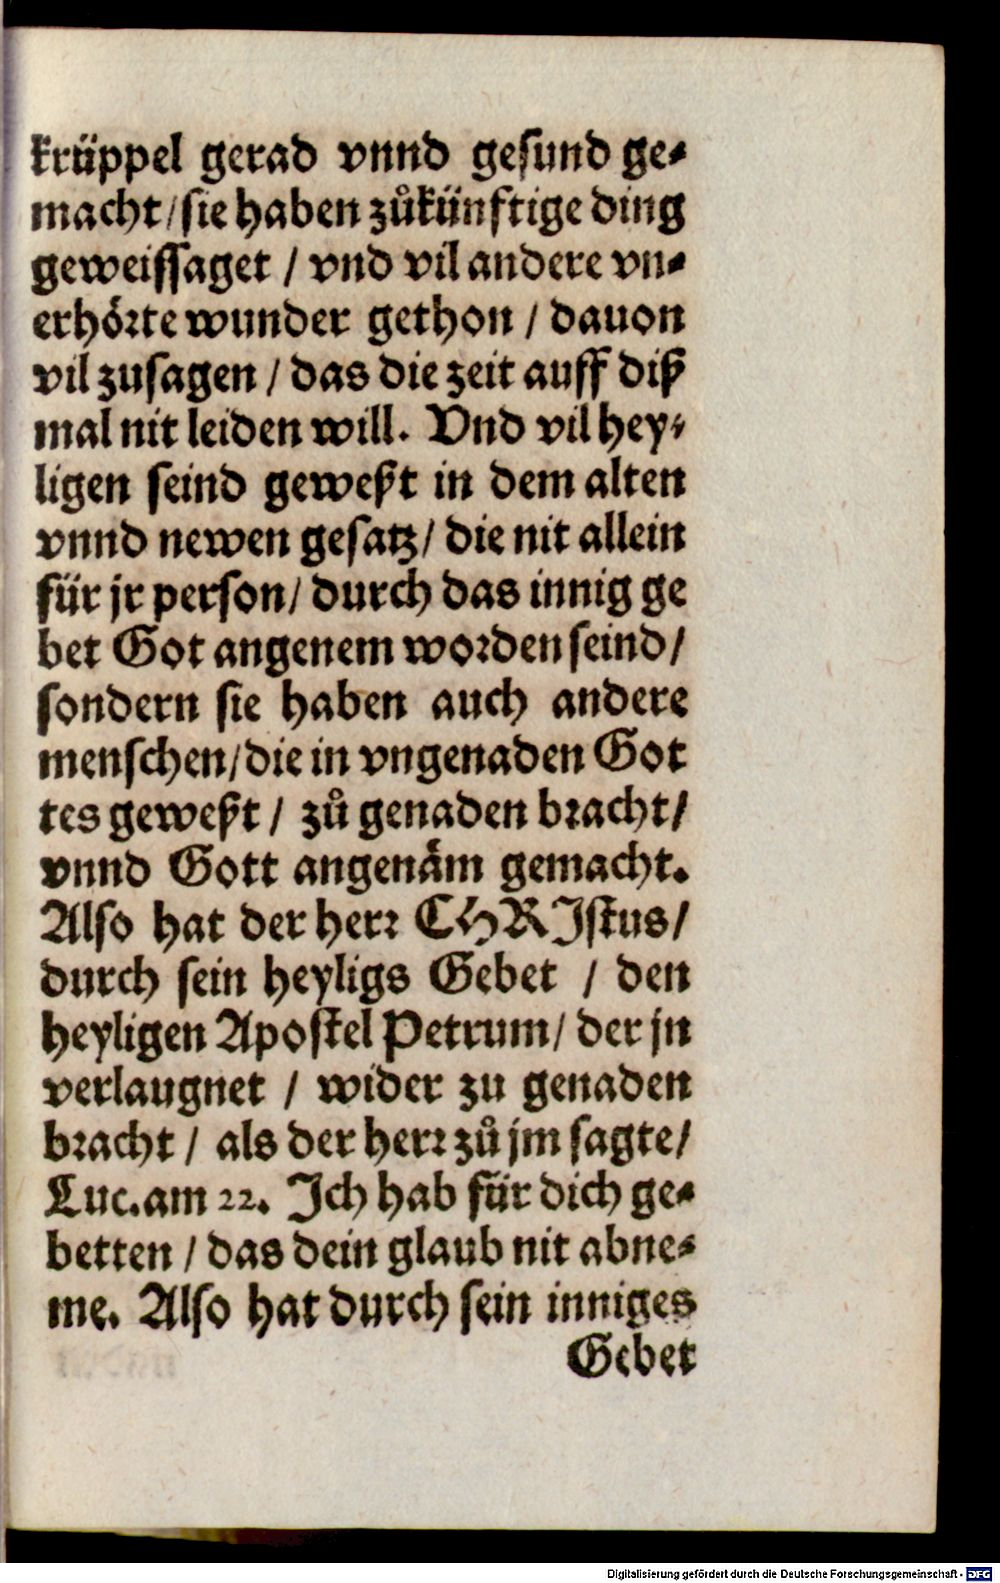 krüppel gerad vnnd gesund ge-
macht/sie haben zůkünftige ding
geweissaget / vnd vil andere vn-
erhörte wunder gethon / dauon
vil zusagen / das die zeit auff diß
mal nit leiden will. Vnd vil hey-
ligen seind geweßt in dem alten
vnnd newen gesatz/ die nit allein
für jr person/ durch das innig ge
bet Got angenem worden seind/
sondern sie haben auch andere
menschen/die in vngenaden Got
tes geweßt / zů genaden bracht/
vnnd Gott angenäm gemacht.
Also hat der herr CHRIstus/
durch sein heyligs Gebet / den
heyligen Apostel Petrum/ der jn
verlaugnet / wider zu genaden
bracht / als der herr zů jm sagte/
Luc. am 22. Ich hab für dich ge-
betten / das dein glaub nit abne-
me. Also hat durch sein inniges
Gebet
Digitalisierung gefördert durch die Deutsche Forschungsgemeinschaft - DFG